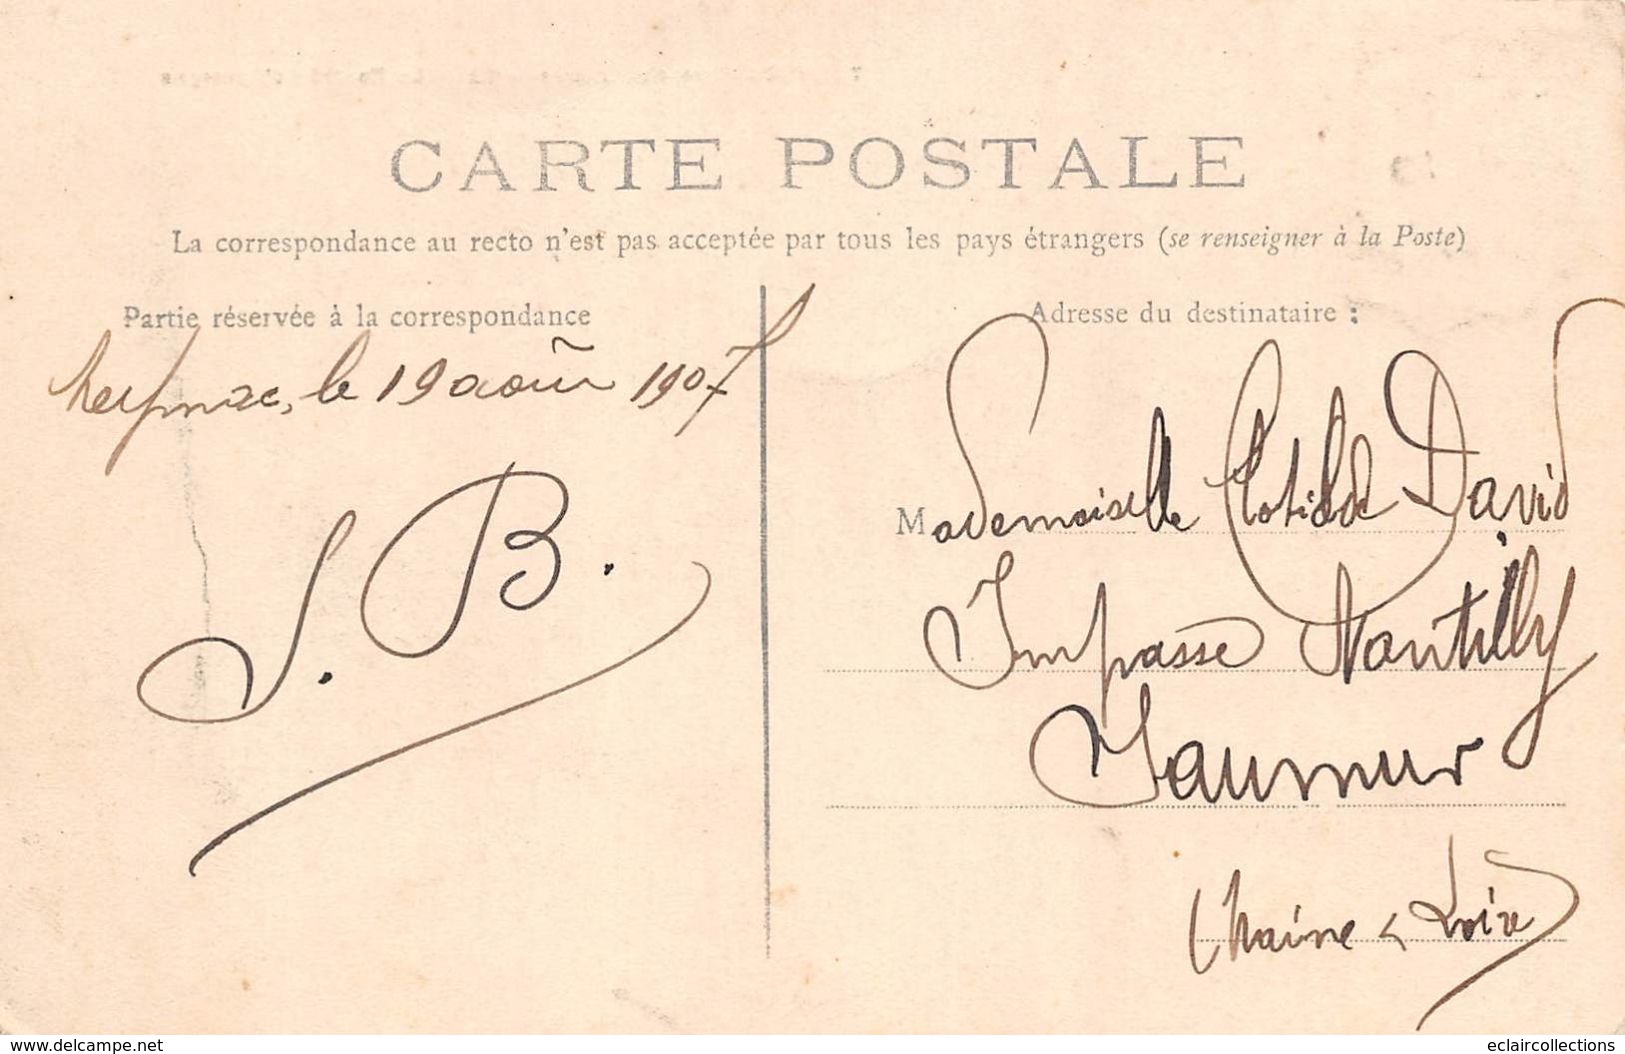 CARTE POSTALE
La correspondance au recto n'est pas acceptée par tous les pays étrangers (se renseigner à la Poste)
Partie réservée à la correspondance
Adresse du destinataire :
Meymac, le 19 août 1907
S. B.
Mademoiselle Clotilde David
Impasse Nantilly
Saumur
(Maine & Loire)
www.delcampe.net
eclaircollections